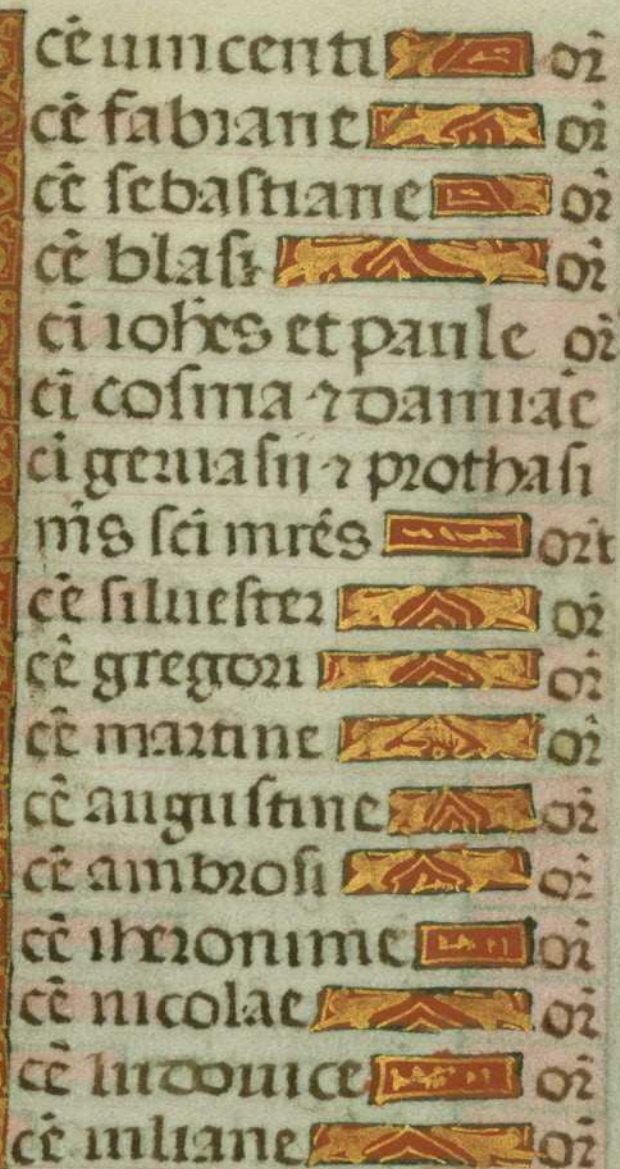 cē uincenti or̄
cē fabiane or̄
cē sebastiane or̄
cē blasi or̄
ci ioħes et paule or̄
ci cosma ⁊ damiāe
ci geruasii ⁊ prothasi
m̄s sci mr̄es or̄t
cē siluester or̄
cē gregori or̄
cē martine or̄
cē augustine or̄
cē ambrosi or̄
cē iheronime or̄
cē nicolae or̄
cē ludouice or̄
cē iuliane or̄